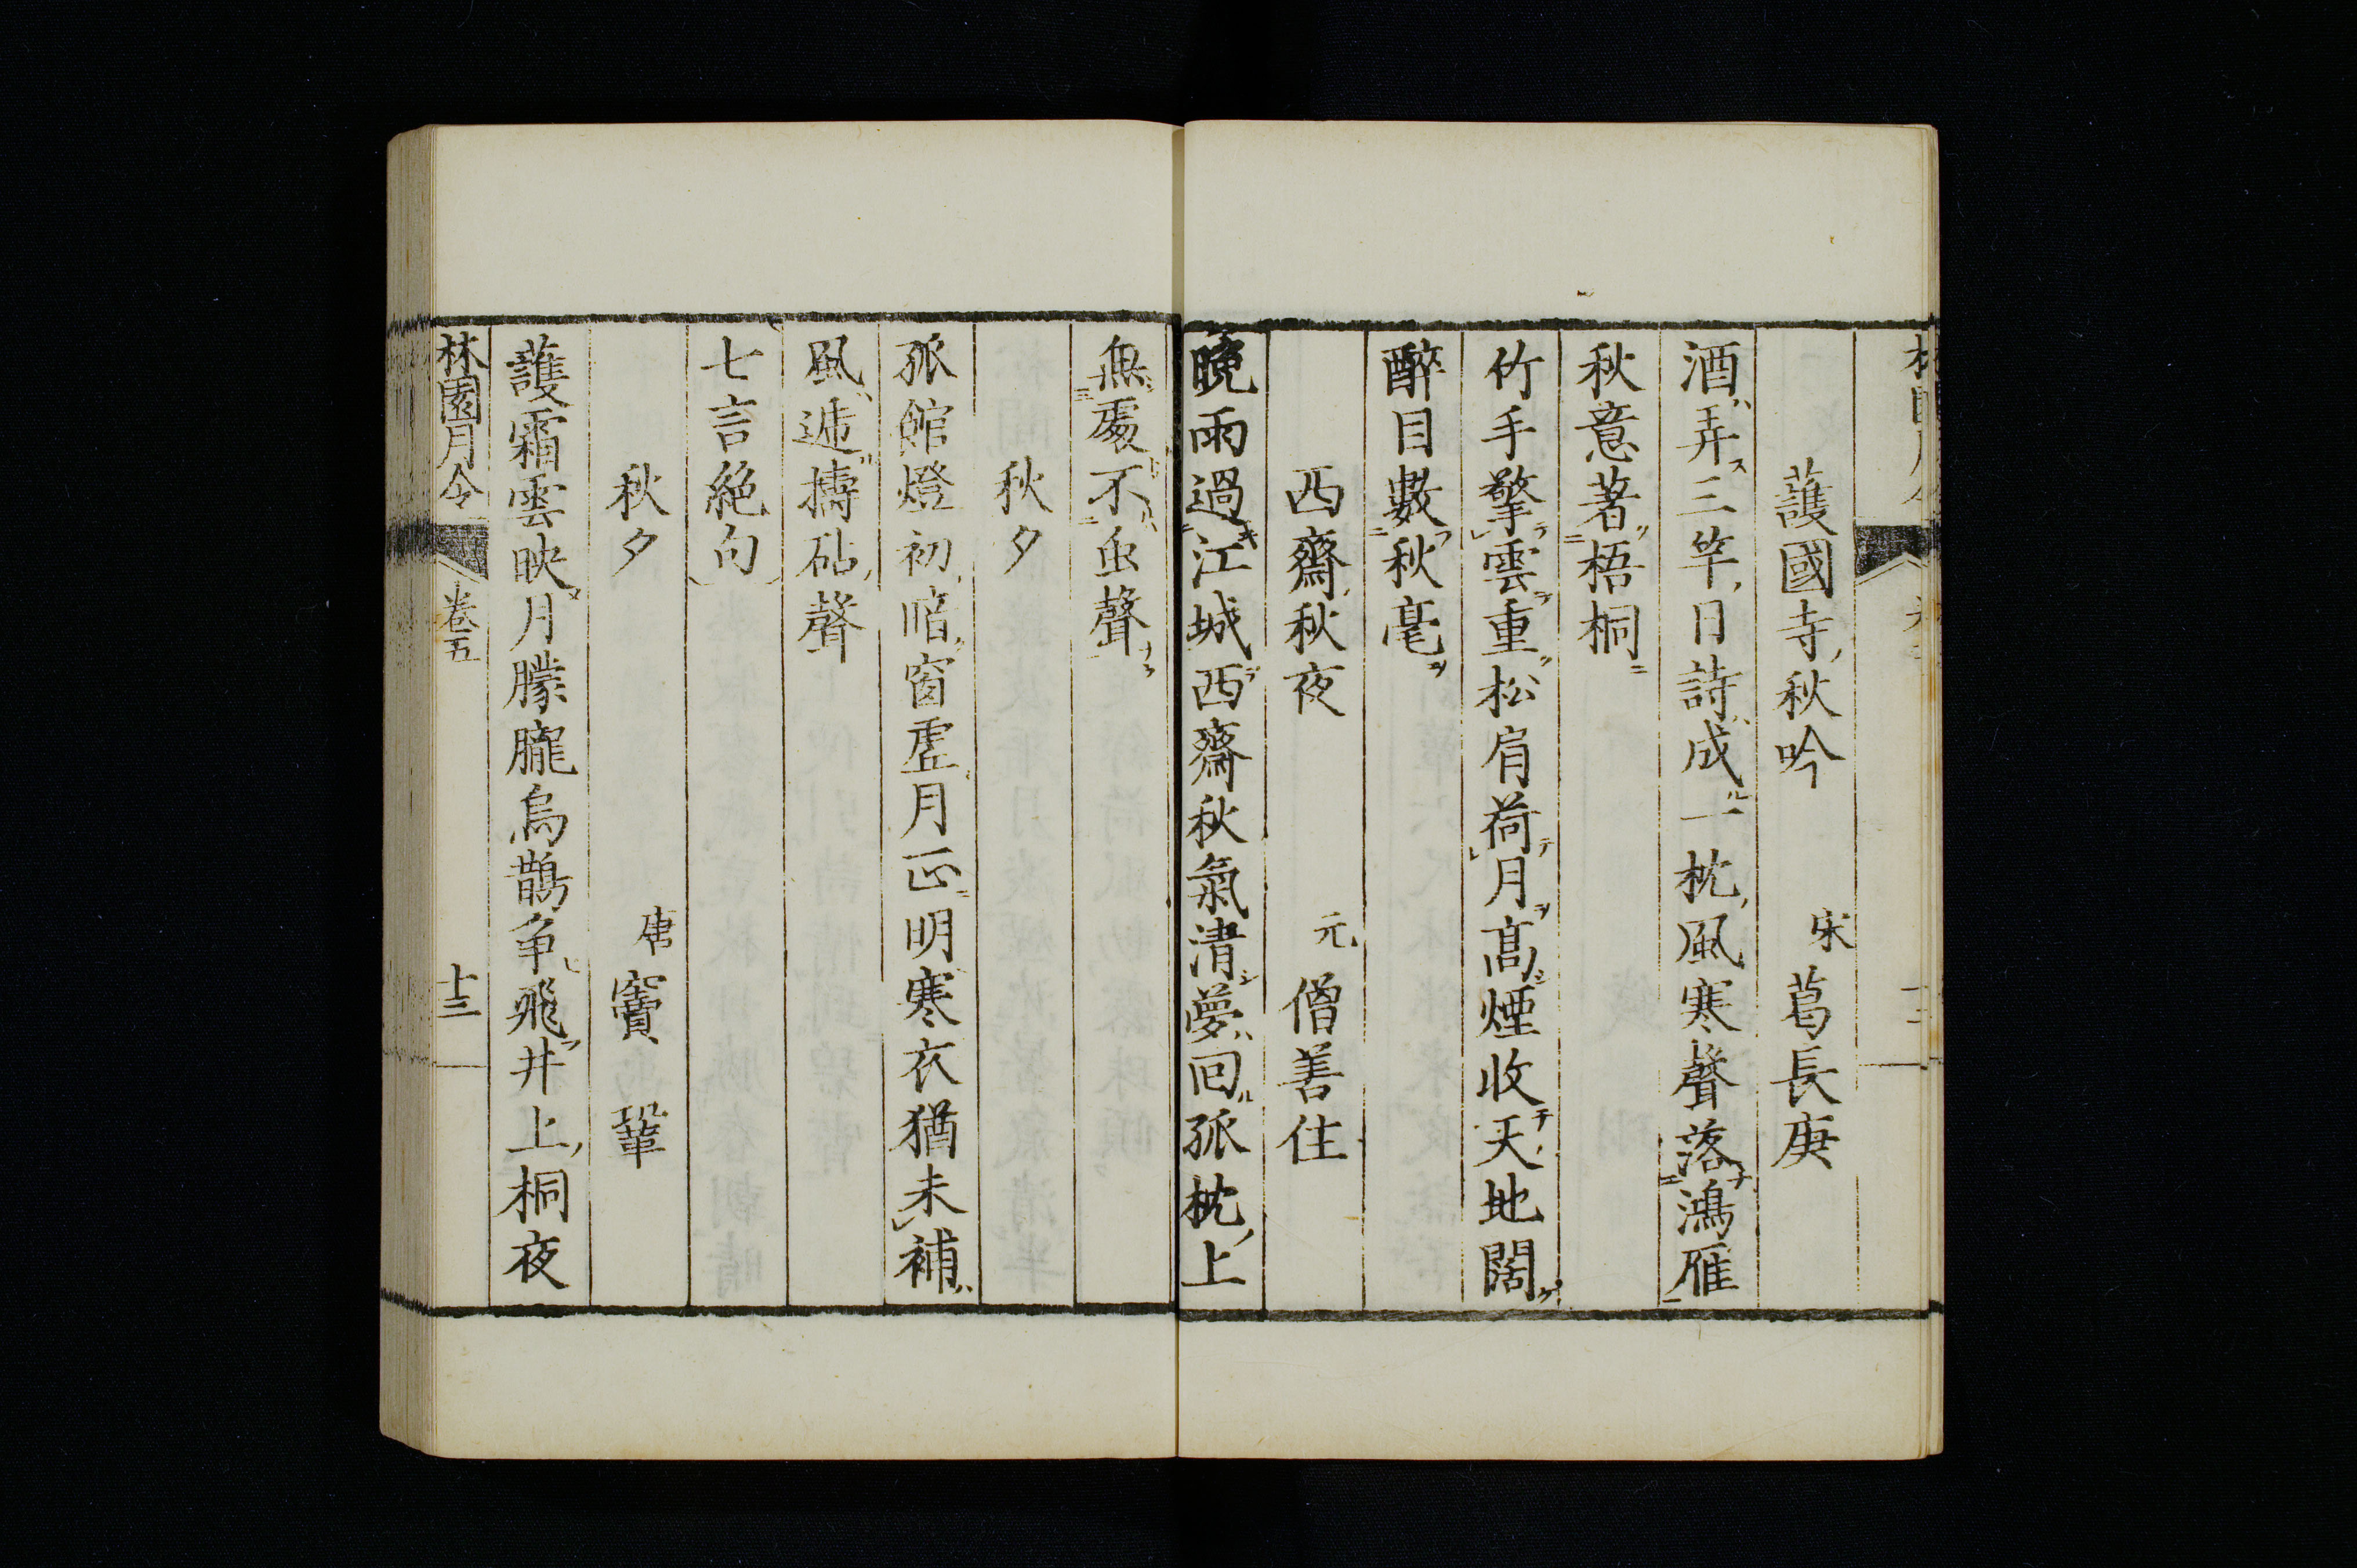 護國寺秋吟 宋 葛長庚
酒弄三竿日詩成一枕風寒聲落鴻雁
秋意著梧桐
竹手擎雲重松肩荷月高煙收天地闊
醉目數秋毫
西齋秋夜 元 僧善住
晩雨過江城西齋秋氣清夢回孤枕上
無處不虫聲
秋夕
孤館燈初暗窗虛月正明寒衣猶未補
風遞擣砧聲
七言絶句
秋夕 唐 竇鞏
護霜雲映月朦朧烏鵲爭飛井上桐夜
林園月令 卷五 十三